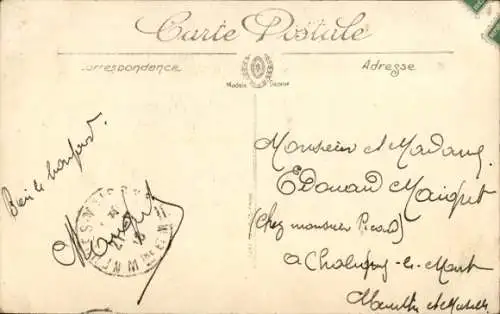 Carte Postale
Correspondance
Adresse
Modèle Déposé
Bien le bonjour.
Monsieur et Madame
Edouard Maigret
(Chez monsieur Picard)
à Chaligny-le-Mont
Meurthe et Moselle